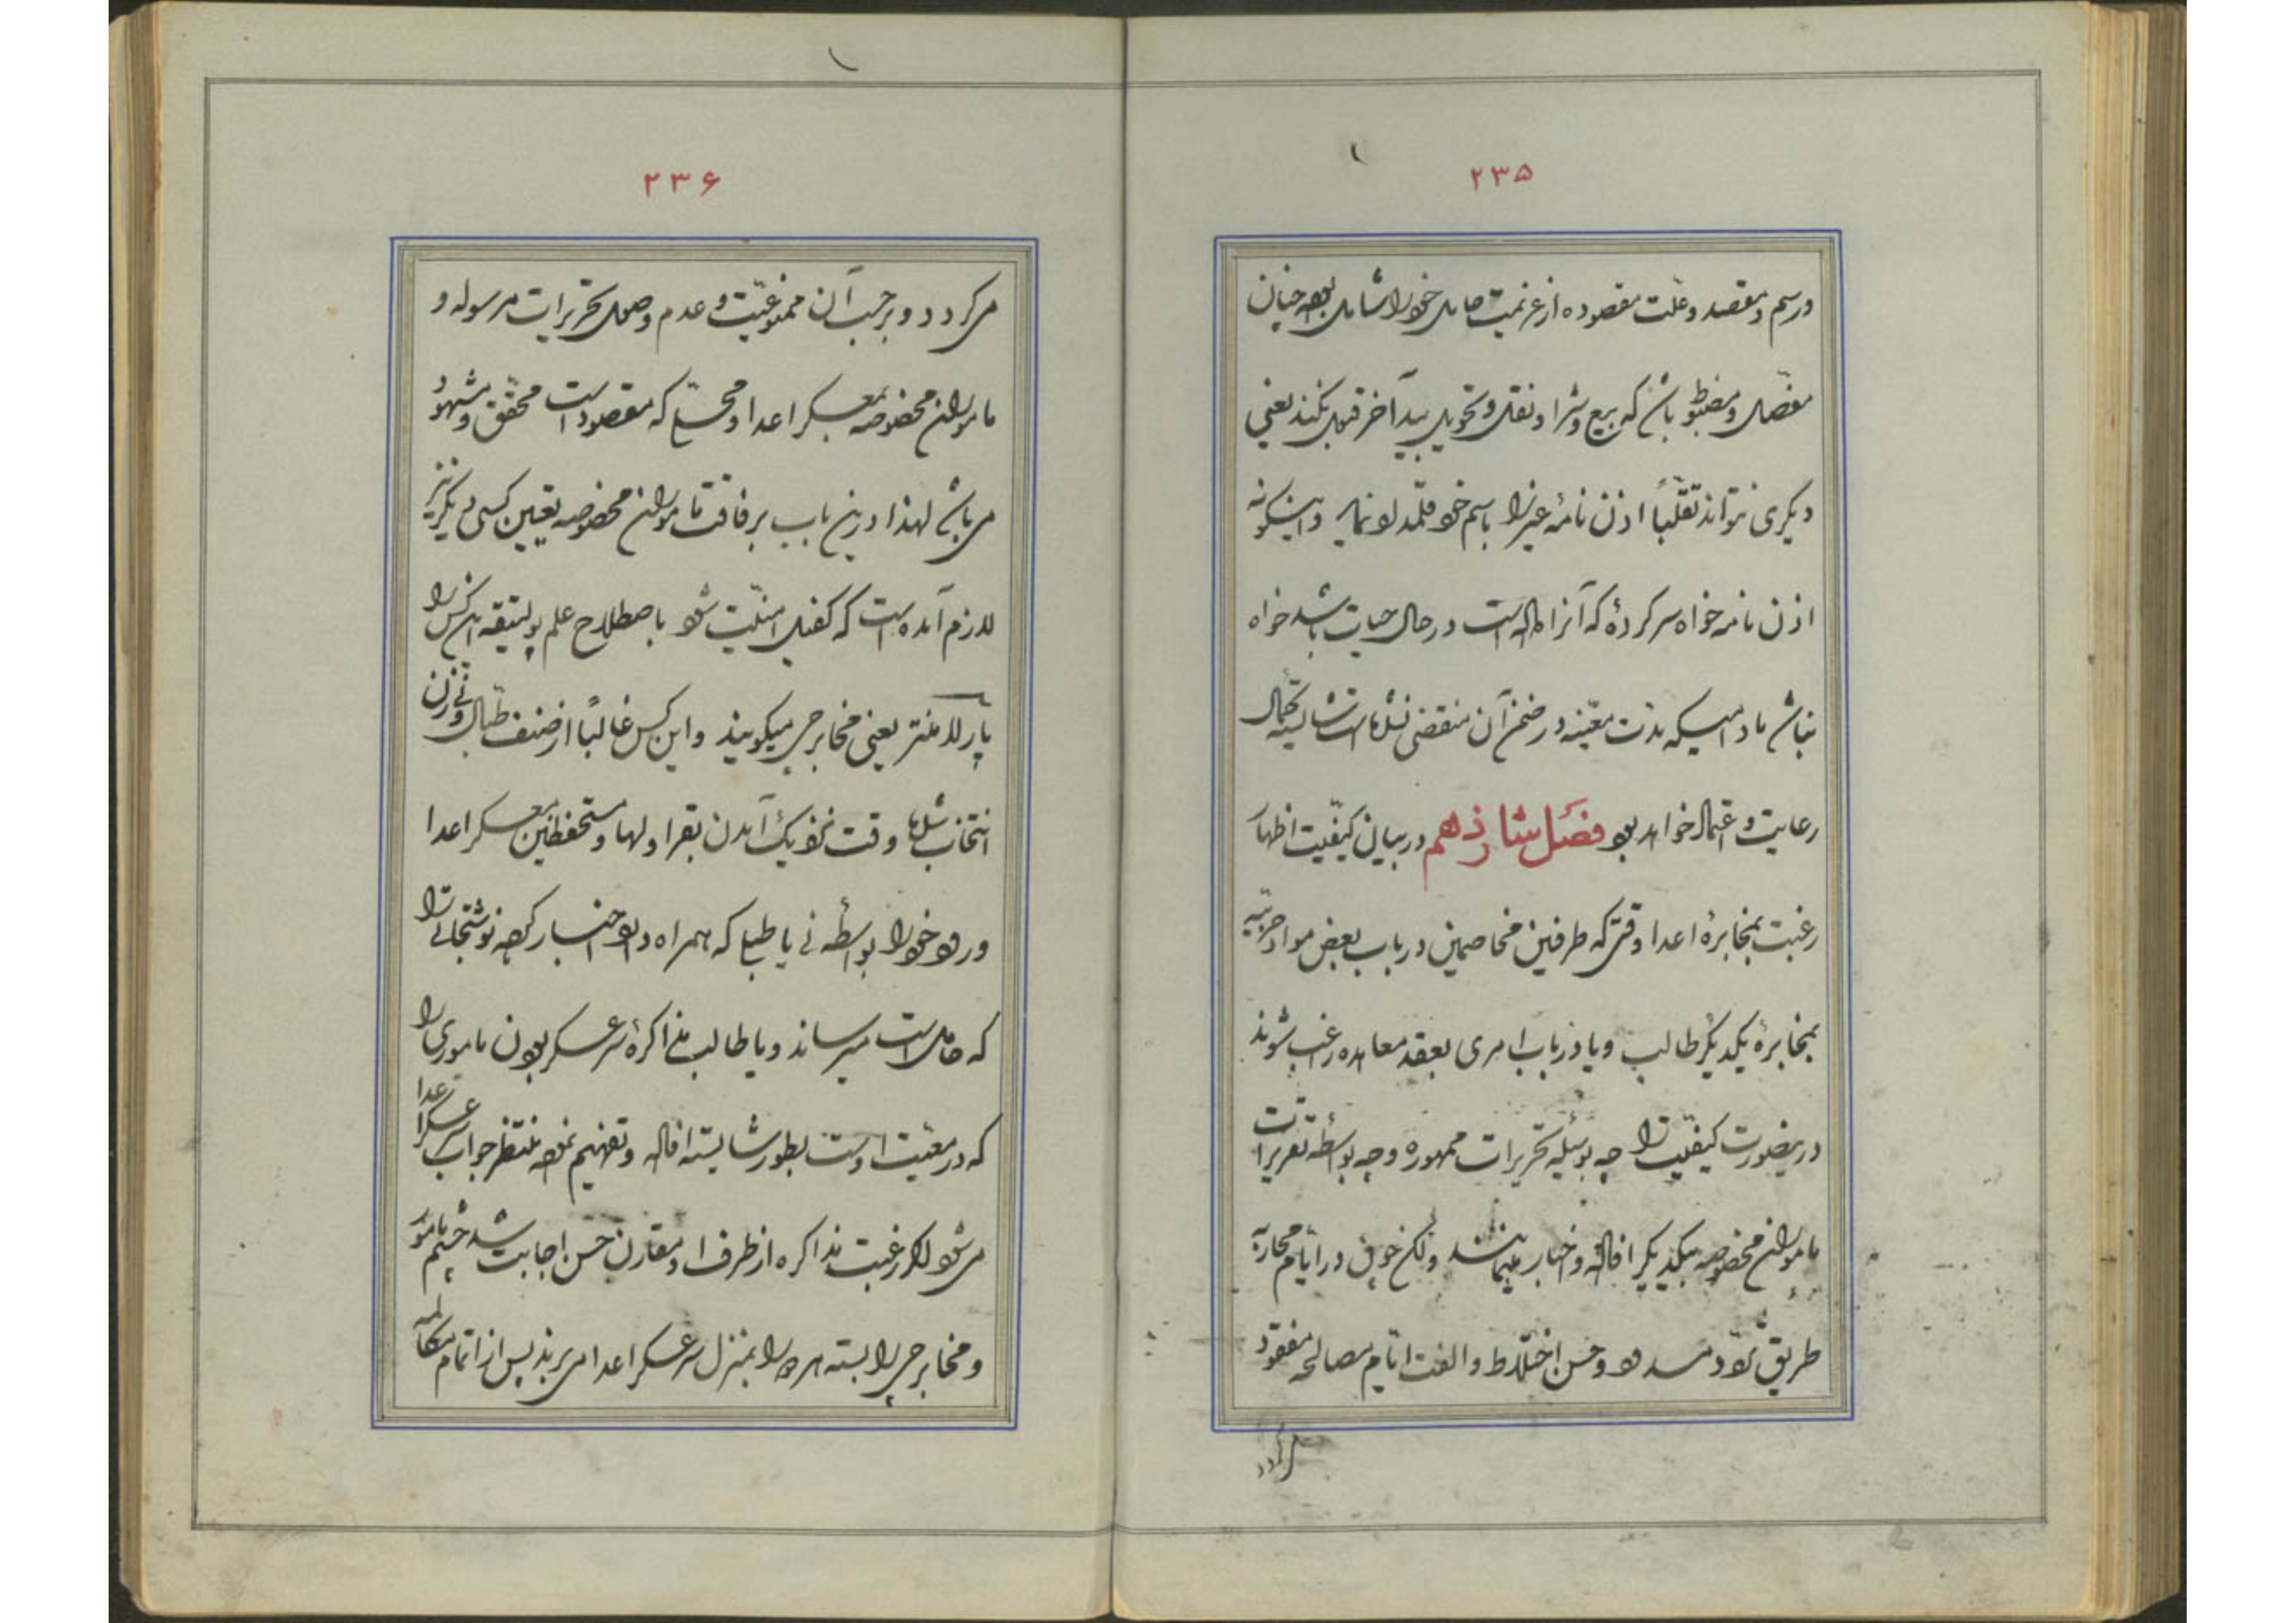 ۲۳۵
و رسم و مقصد و علّت مقصوده از عزیمت حامل خود را شامل بوده چنان
مفصّل و مضبوط باشد که بیع و شرا و نقل و تحویل بید آخر قبول نکند یعنی
دیگری نتواند تقلّباً اذن نامهٔ غیر را باسم خود قلمداد نماید و اینگونه
اذن نامه خواه سرکردهٔ که آنرا داده است در حال حیات باشد خواه
نباشد مادامیکه مدّت معیّنه در ضمن آن منقضی نشده است شایستهٔ
رعایت و اعتماد خواهد بود فصل شانزدهم در بیان کیفیّت اظهار
رغبت بمخابرهٔ اعدا وقتی که طرفین مخاصمین در باب بعض مواد حربیّه
بمخابرهٔ یکدیگر طالب و یا در باب امری بعقد معاهده راغب شوند
درینصورت کیفیّت را چه بوسیلهٔ تحریرات ممهوره و چه بواسطهٔ تقریرات
مأموران مخصوصه بیکدیگر افاده و اخبار مینمایند ولکن چون در ایّام محاربه
طریق تردّد مسدود و حسن اختلاط و الفت ایّام مصالحه مفقود
میگردد
۲۳۶
میگردد و بر حسب آن ممنوعیّت و عدم وصول تحریرات مرسوله و
مأموران مخصوصه بمعسکر اعدا و محلّی که مقصود است محقّق و مشهود
میباشد لهذا درین باب برفاقت مأموران مخصوصه تعیین کسی دیگر نیز
لازم آمده است که کفیل امنیّت شود باصطلاح علم پولتیقه این کس را
پارلامنتر یعنی مخابرجی میگویند و این کس غالباً از صنف طبّال و نی زن
انتخاب شده وقت نزدیک آمدن بقراولها و مستحفظین معسکر اعدا
ورود خود را بواسطه نی یا طبلی که همراه دارد اخبار کرده نوشتجاتی را
که حامل است میرساند و یا طالب مذاکرهٔ سرعسکر بودن مأموری را
که در معیّت اوست بطور شایسته افاده و تفهیم نموده منتظر جواب سرعسکر اعدا
میشود اگر رغبت مذاکره از طرف او مقارن حسن اجابت شد چشم مأمور
و مخابرجی را بسته همراه را بمنزل سرعسکر اعدا میبرند پس از اتمام مکالمه